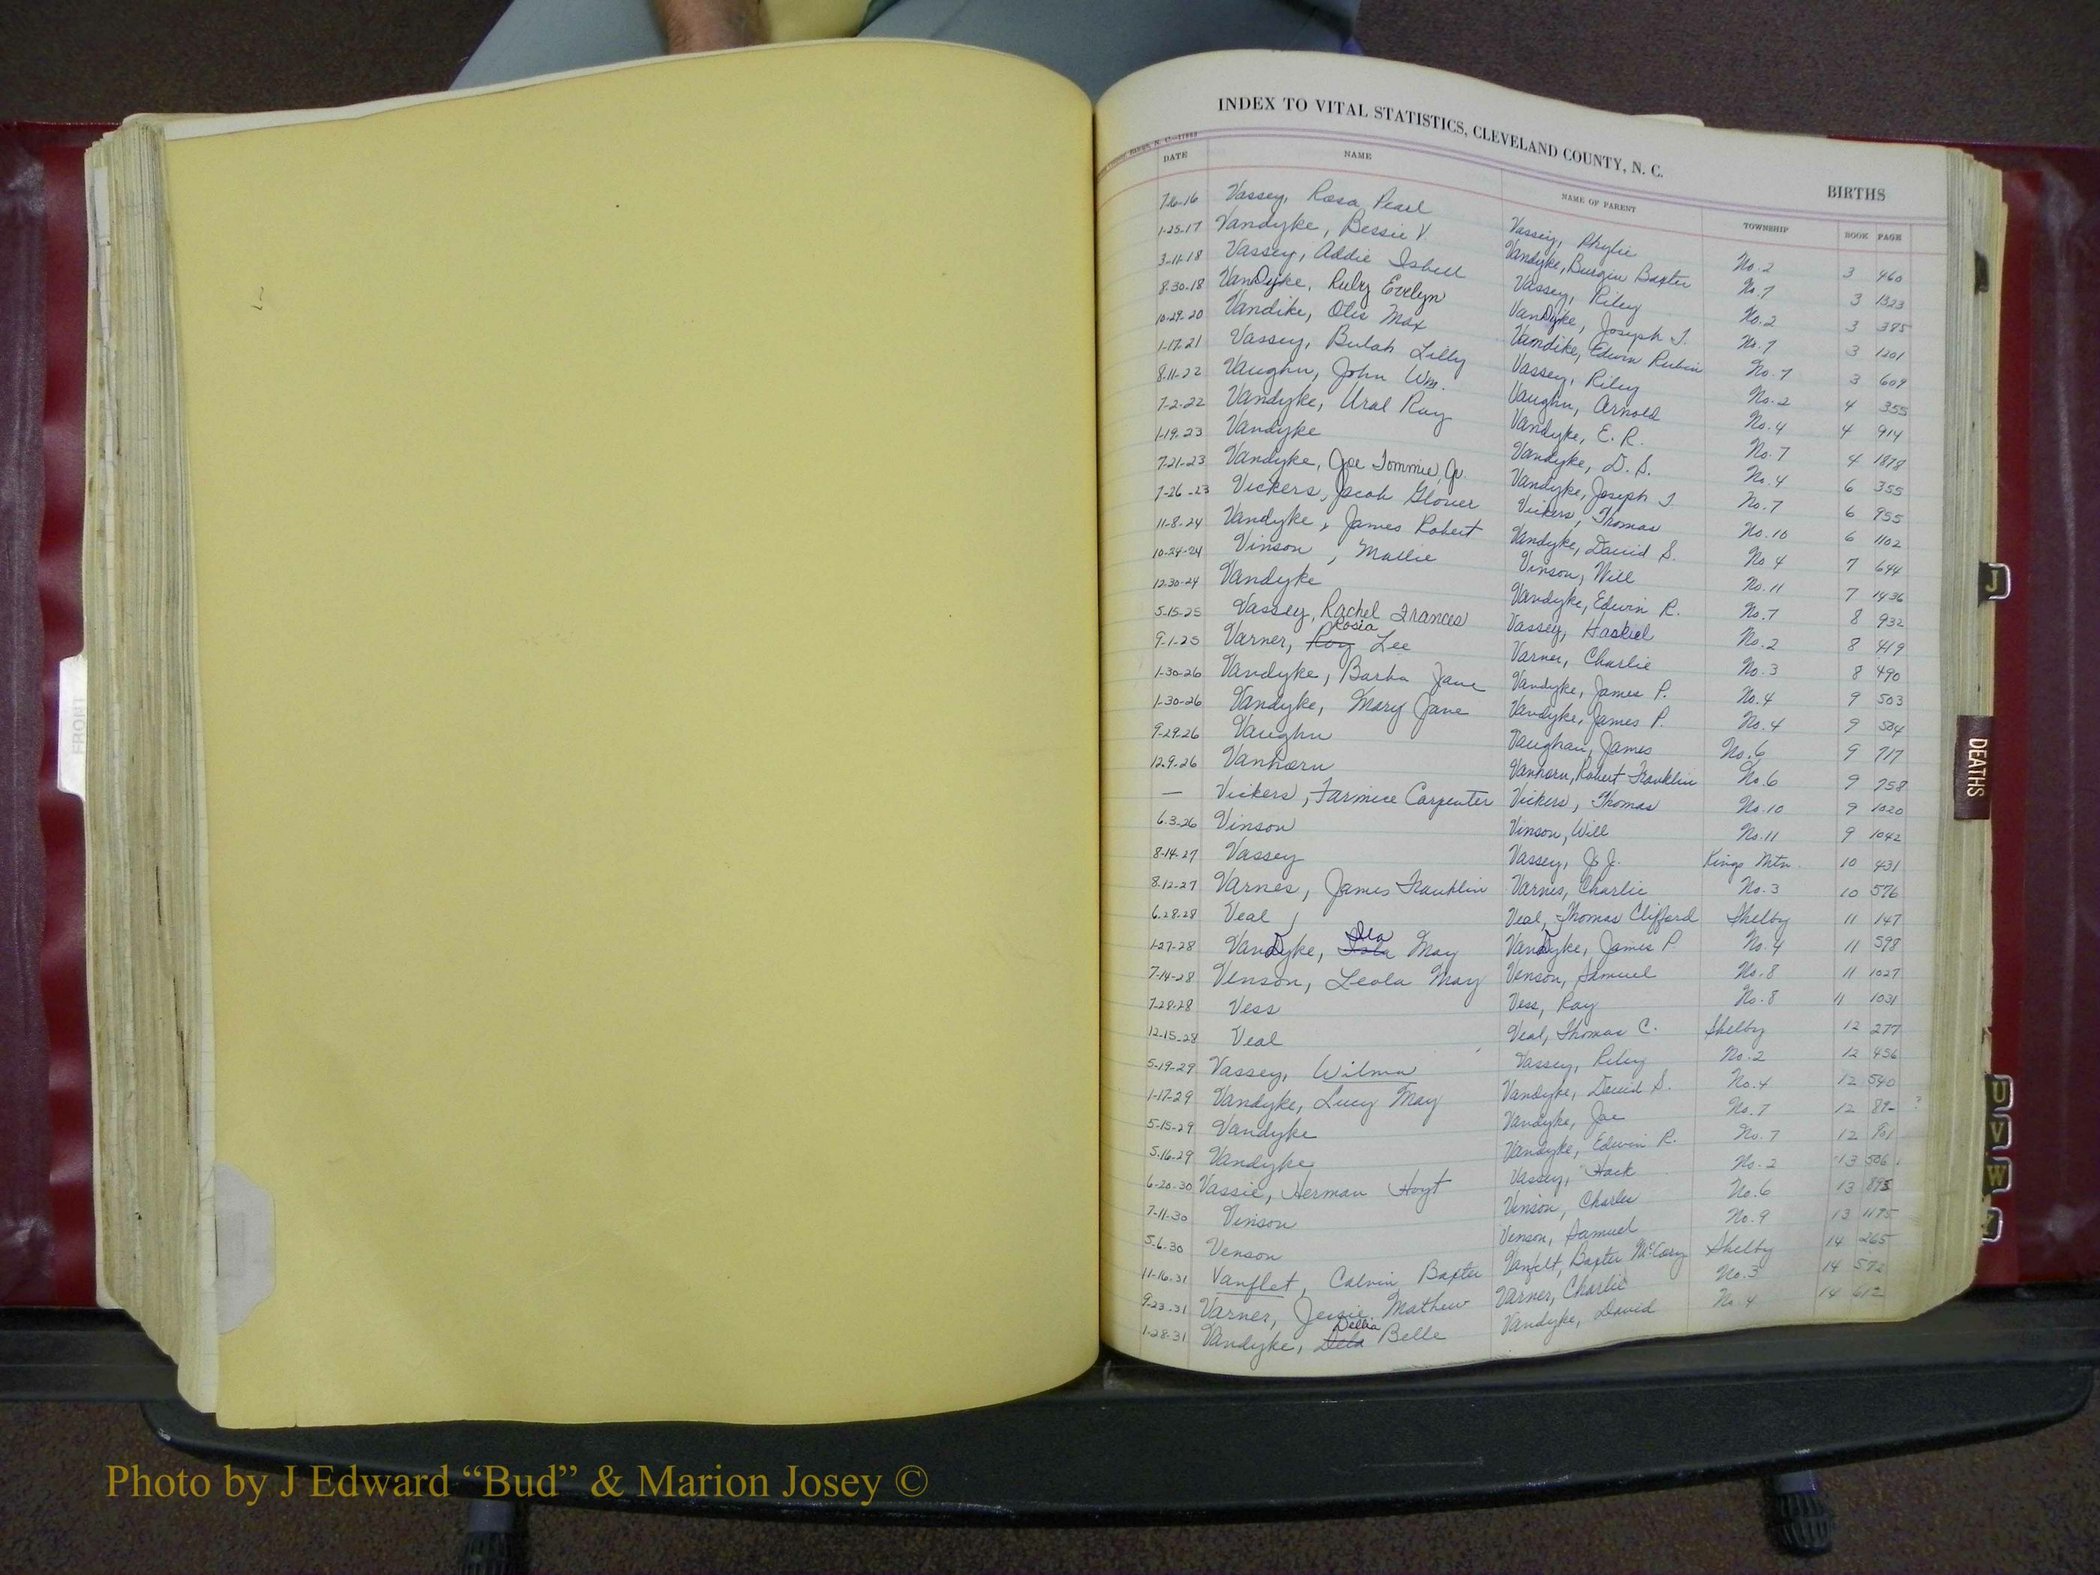 INDEX TO VITAL STATISTICS, CLEVELAND COUNTY, N. C.
BIRTHS
DATE NAME NAME OF PARENT TOWNSHIP BOOK PAGE
7-16-16 Vassey, Rosa Pearl Vassey, Phylie No. 2 3 460
1-25-17 Vandyke, Bessie V. Vandyke, Burgin Baxter No. 7 3 1323
3-11-18 Vassey, Addie Isbell Vassey, Riley No. 2 3 385
8-30-18 VanDyke, Ruby Evelyn VanDyke, Joseph T. No. 7 3 1201
10-29-20 Vandike, Otis Max Vandike, Edwin Rubin No. 7 3 609
1-17-21 Vassey, Bulah Lilly Vassey, Riley No. 2 4 355
8-11-22 Vaughn, John Wm. Vaughn, Arnold No. 4 4 914
7-2-22 Vandyke, Ural Ray Vandyke, E. R. No. 7 4 1878
1-19-23 Vandyke Vandyke, D. S. No. 4 6 355
7-21-23 Vandyke, Joe Tommie, Jr. Vandyke, Joseph T No. 7 6 955
7-26-23 Vickers, Jacob Glover Vickers, Thomas No. 10 6 1102
11-8-24 Vandyke, James Robert Vandyke, David S. No 4 7 644
10-24-24 Vinson, Mallie Vinson, Will No. 11 7 1436
12-30-24 Vandyke Vandyke, Edwin R. No. 7 8 932
5-15-25 Vassey, Rachel Frances Vassey, Haskiel No. 2 8 419
9-1-25 Varner, Roy Rosia Lee Varner, Charlie No. 3 8 490
1-30-26 Vandyke, Barba Jane Vandyke, James P. No. 4 9 503
1-30-26 Vandyke, Mary Jane Vandyke, James P. No. 4 9 504
9-29-26 Vaughn Vaughan, James No. 6 9 717
12-9-26 Vanhorn Vanhorn, Robert Franklin No. 6 9 758
— Vickers, Farmice Carpenter Vickers, Thomas No. 10 9 1020
6-3-26 Vinson Vinson, Will No. 11 9 1042
8-14-27 Vassey Vassey, J. J. Kings Mtn. 10 431
8-12-27 Varnes, James Franklin Varnes, Charlie No. 3 10 576
6-28-28 Veal Veal, Thomas Clifford Shelby 11 147
1-27-28 VanDyke, Iva May VanDyke, James P. No. 4 11 598
7-14-28 Venson, Leola May Venson, Samuel No. 8 11 1027
7-28-28 Vess Vess, Ray No. 8 11 1031
12-15-28 Veal Veal, Thomas C. Shelby 12 277
5-19-29 Vassey, Wilma Vassey, Riley No. 2 12 456
1-17-29 Vandyke, Lucy May Vandyke, David S. No. 4 12 540
5-15-29 Vandyke Vandyke, Joe No. 7 12 89- ?
5-16-29 Vandyke Vandyke, Edwin R. No. 7 12 901
6-20-30 Vassie, Herman Hoyt Vassey, Hack No. 2 13 506
7-11-30 Vinson Vinson, Charles No. 6 13 895
5-6-30 Venson Venson, Samuel No. 9 13 1195
11-16-31 Vanflet, Calvin Baxter Vanfelt, Baxter McCory Shelby 14 265
9-23-31 Varner, Jessie Mathew Varner, Charlie No. 3 14 572
1-28-31 Vandyke, Dela Dellia Belle Vandyke, David No. 4 14 612
FRONT
J
DEATHS
U
V
W
Photo by J Edward “Bud” & Marion Josey ©